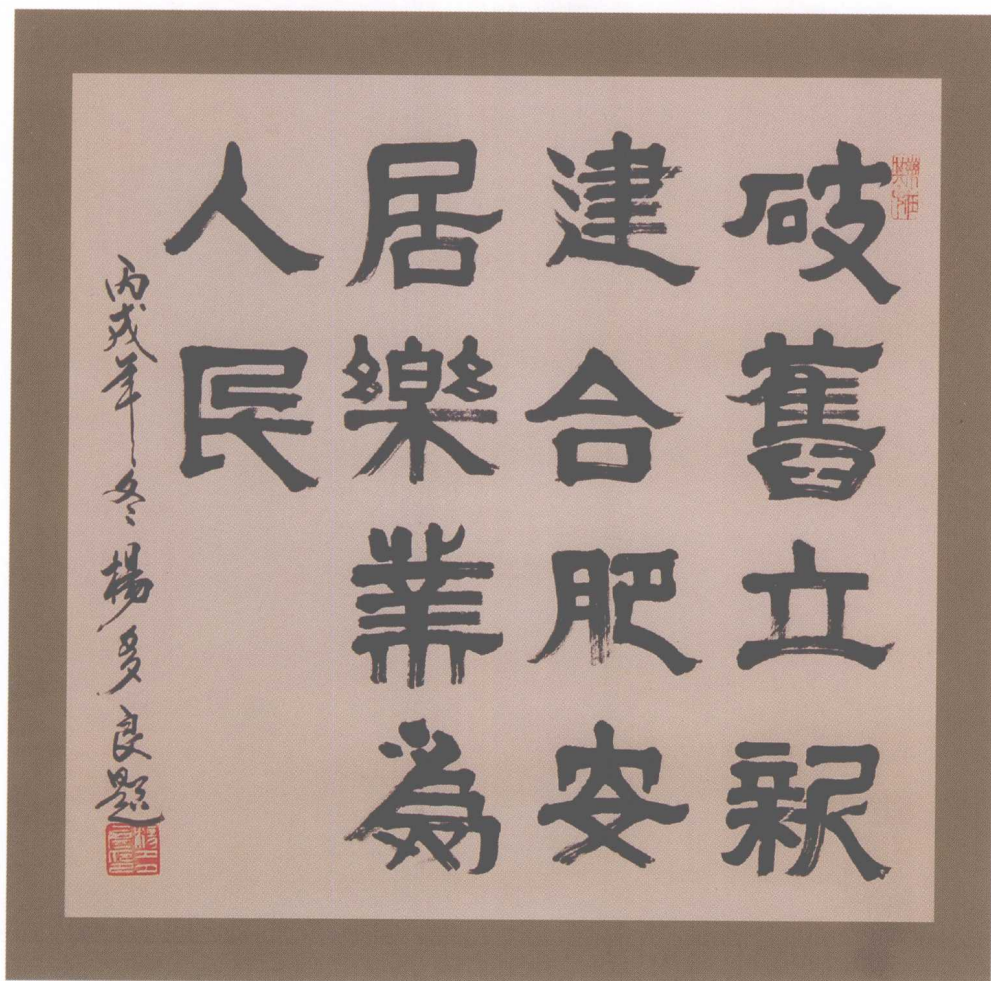 破舊立新
建合肥安
居樂業為
人民
丙戌年冬楊多良題